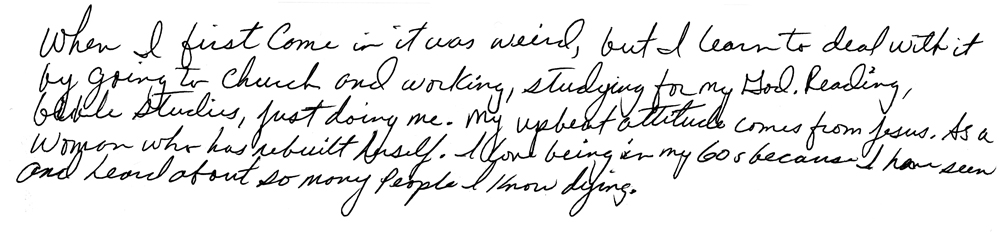 When I first Come in it was weird, but I learn to deal with it
by going to church and working, studying for my God. Reading,
bible studies, just doing me. My upbeat attitude comes from Jesus. As a
Woman who has rebuilt herself. I love being in my 60s because I have seen
and heard about so many People I know dying.